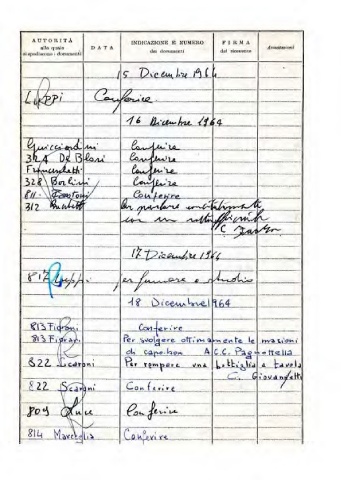 AUTORITÀ
alla quale
si spediscono i documenti
DATA
INDICAZIONE E NUMERO
dei documenti
FIRMA
del ricevente
Annotazioni
15 Dicembre 1964
Luppi Conferire
16 Dicembre 1964
Guicciardini Conferire
324 De Blasi Conferire
Franceschetti Conferire
328 Borlini Conferire
811 Conferire
312 Per parlare
con un sottufficiale
17 Dicembre 1964
817 Luppi per fumare a studio
18 Dicembre 1964
813 Fioroni Conferire
813 Fioroni Per svolgere ottimamente le mansioni
di capo-box A.C.C. Pagnottella
822 Scaroni Per rompere una bottiglia a tavola
C. Giovanetti
822 Scaroni Conferire
809 Luce Conferire
814 Conferire